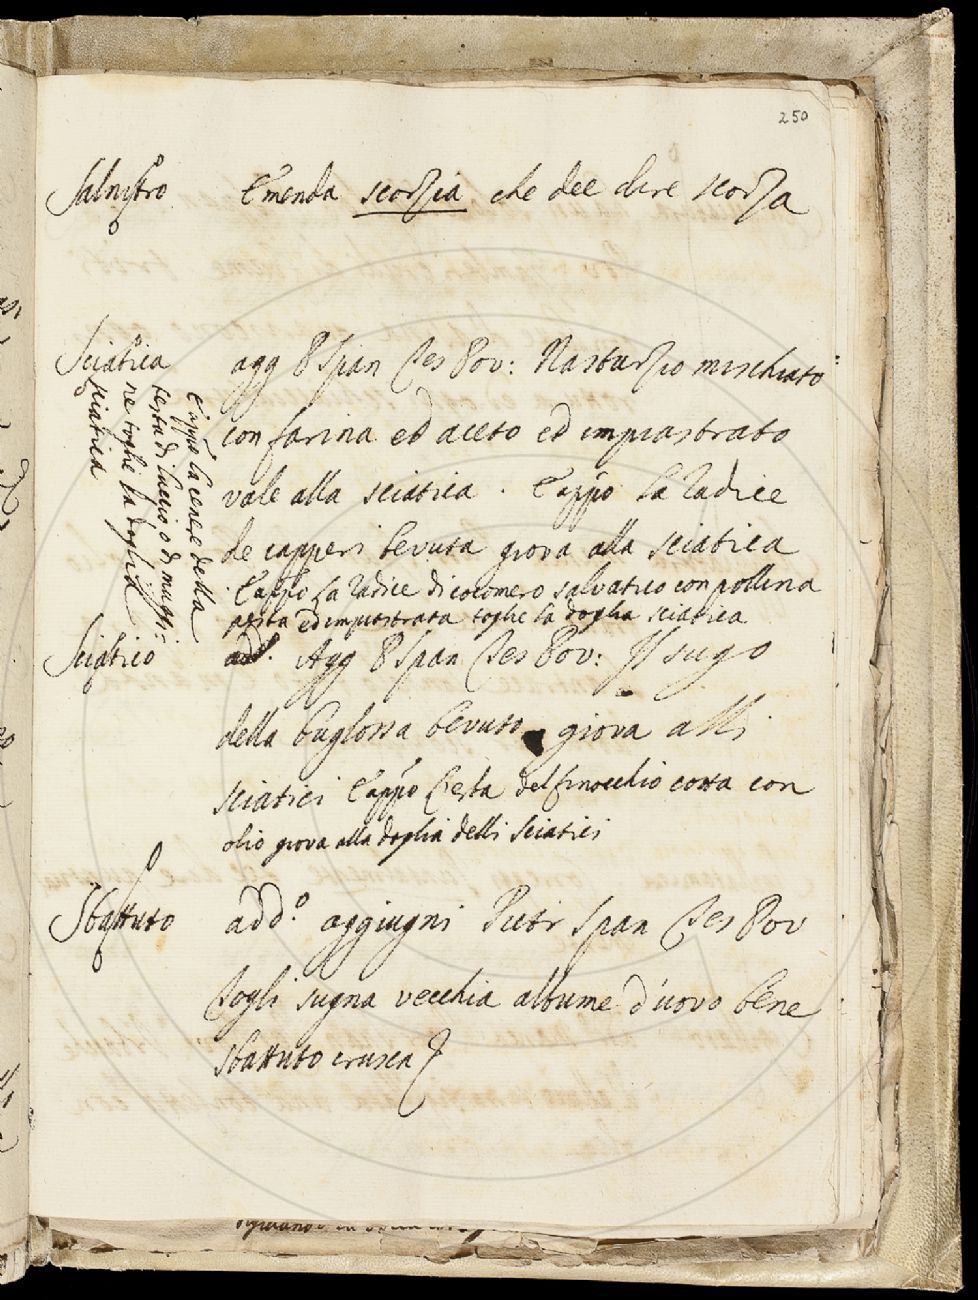 250
Salnistro Emenda scorzia che dee dire scorza
Sciatica agg P Span Tes Pov: Nasturzio mischiato
con farina ed aceto ed impiastrato
vale alla sciatica. E app͂o la radice
de capperi bevuta giova alla sciatica
E app͂o la radice di cocomero salvatico con pollina
pesta ed impiastrata toglie la doglia sciatica
E app͂o la cenere della
testa di luccio, o di muggi-
ne toglie la doglia
sciatica
Sciatico add. Agg P Span Tes Pov: Il sugo
della buglossa bevuto giova alli
sciatici E app͂o Testa del finocchio cotta con
olio giova alla doglia delli sciatici
Sbattuto add.° aggiugni Pietr Span Tes Pov
Togli sugna vecchia albume d'uovo bene
sbattuto crusca